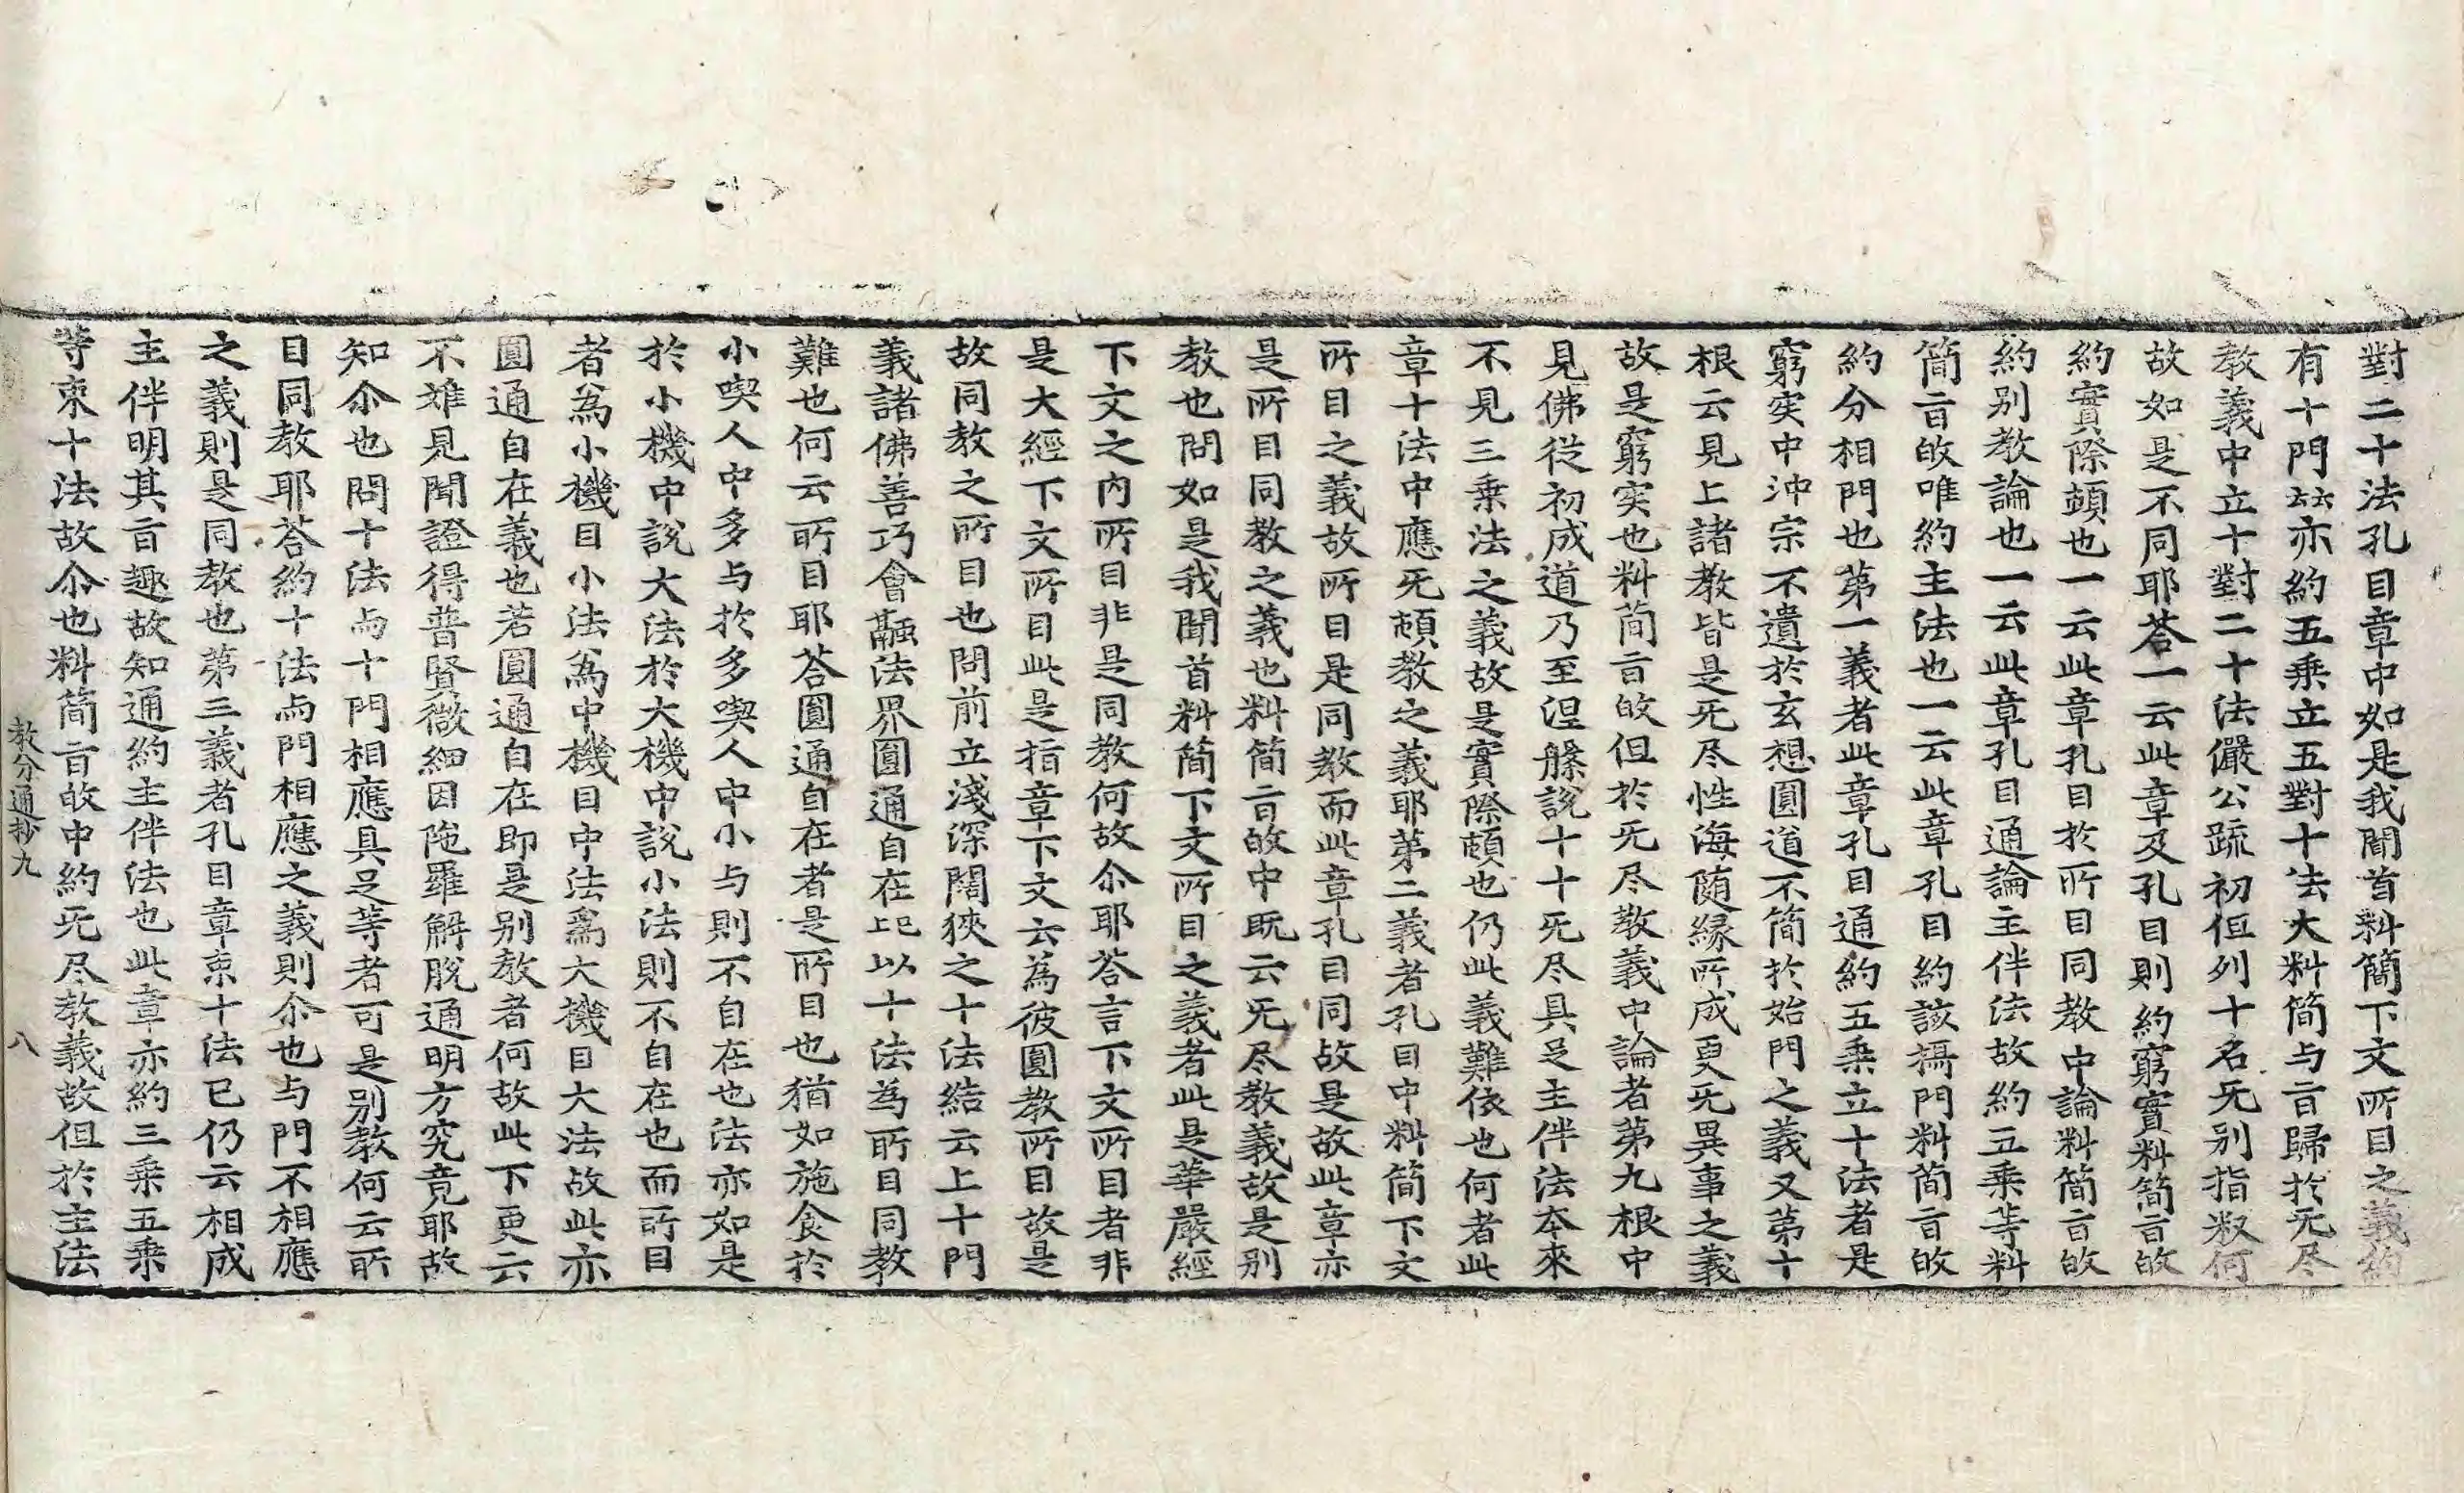 對二十法孔目章中如是我聞首料簡下文所目之義約
有十門㚖亦約五乘立五對十法大料簡与㫖歸於旡尽
教義中立十對二十法儼公䟽初但列十名旡别指㕘何
故如是不同耶荅一云此章及孔目則約窮實料簡㫖䛐
約實際頓也一云此章孔目於所目同教中論料簡㫖䛐
約别教論也一云此章孔目通論主伴法故約五乘等料
簡㫖䛐唯約主法也一云此章孔目約該攝門料简㫖䛐
約分相門也第一義者此章孔目通約五乘立十法者是
窮实中沖宗不遺於玄想圓道不簡於始門之義又第十
根云見上諸教皆是旡尽性海随縁所成更旡異事之義
故是窮实也料简㫖䛐但於旡尽教義中論者第九根中
見佛從初成道乃至涅槃說十十旡尽具足主伴法夲來
不見三乘法之義故是實際頓也仍此義難依也何者此
章十法中應旡頓教之義耶第二義者孔目中料简下文
所目之義故所目是同教而此章孔目同故是故此章亦
是所目同教之義也料簡㫖䛐中既云旡尽教義故是别
教也問如是我聞首料簡下文所目之義者此是華嚴經
下文之内所目非是同教何故尒耶荅言下文所目者非
是大經下文所目此是指章下文云為彼圓教所目故是
故同教之所目也問前立淺深闊狹之十法結云上十門
義諸佛善巧會融法界圓通自在已上以十法為所目同教
難也何云所目耶荅圓通自在者是所目也猶如施食於
小喫人中多与於多喫人中小与則不自在也法亦如是
於小機中說大法於大機中說小法則不自在也而所目
者為小機目小法為中機目中法為大機目大法故此亦
圓通自在義也若圓通自在即是别教者何故此下更云
不難見聞證得普賢微細因陁羅解脫通明方究竟耶故
知尒也問十法与十門相應具足等者可是别教何云所
目同教耶荅約十法与門相應之義則尒也与門不相應
之義則是同教也第三義者孔目章束十法已仍云相成
主伴明其㫖趣故知通約主伴法也此章亦約三乘五乘
等束十法故尒也料简㫖䛐中約旡尽教義故但於主法
教分通抄九 八